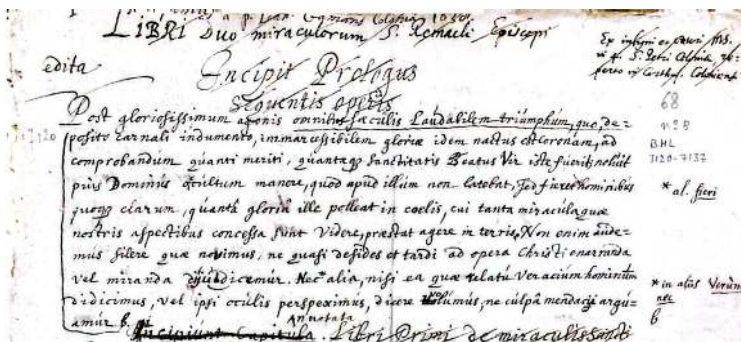 LIBRI Duo miraculorum S. Remacli Episcopi
edita
Incipit Prologus
Sequentis operis
Ex insigni MS.
S. Petri
68
nº 8
BHL
7120-7137
Post gloriosissimum agonis omnibus sæculis Laudabilem triumphum, quo, de=
posito carnali indumento, immarcessibilem gloriæ idem nactus est coronam, ad
comprobandum quanti meriti, quantaq3 Sanctitatis Beatus Vir iste fuerit, noluit
pius Dominus occultum manere, quod apud illum non latebat, sed fieret hominibus
* al. fieri
quoq3 clarum, quantâ gloriâ ille polleat in cœlis, cui tanta miracula quæ
nostris aspectibus concessa sunt Videre, præstat agere in terris. Non enim aude=
mus silere quæ novimus, ne quasi desides et tardi ad opera Christi enarranda
vel miranda dijudicemur. Nec* alia, nisi ea quæ relatu Veracium hominum
* in aliis Verùm
nec
didicimus, vel ipsi oculis perspeximus, dicere volumus, ne culpâ mendacij argu=
amur b.
b
Annotata
Incipiunt Capitula. Libri Primi de miraculis Sancti